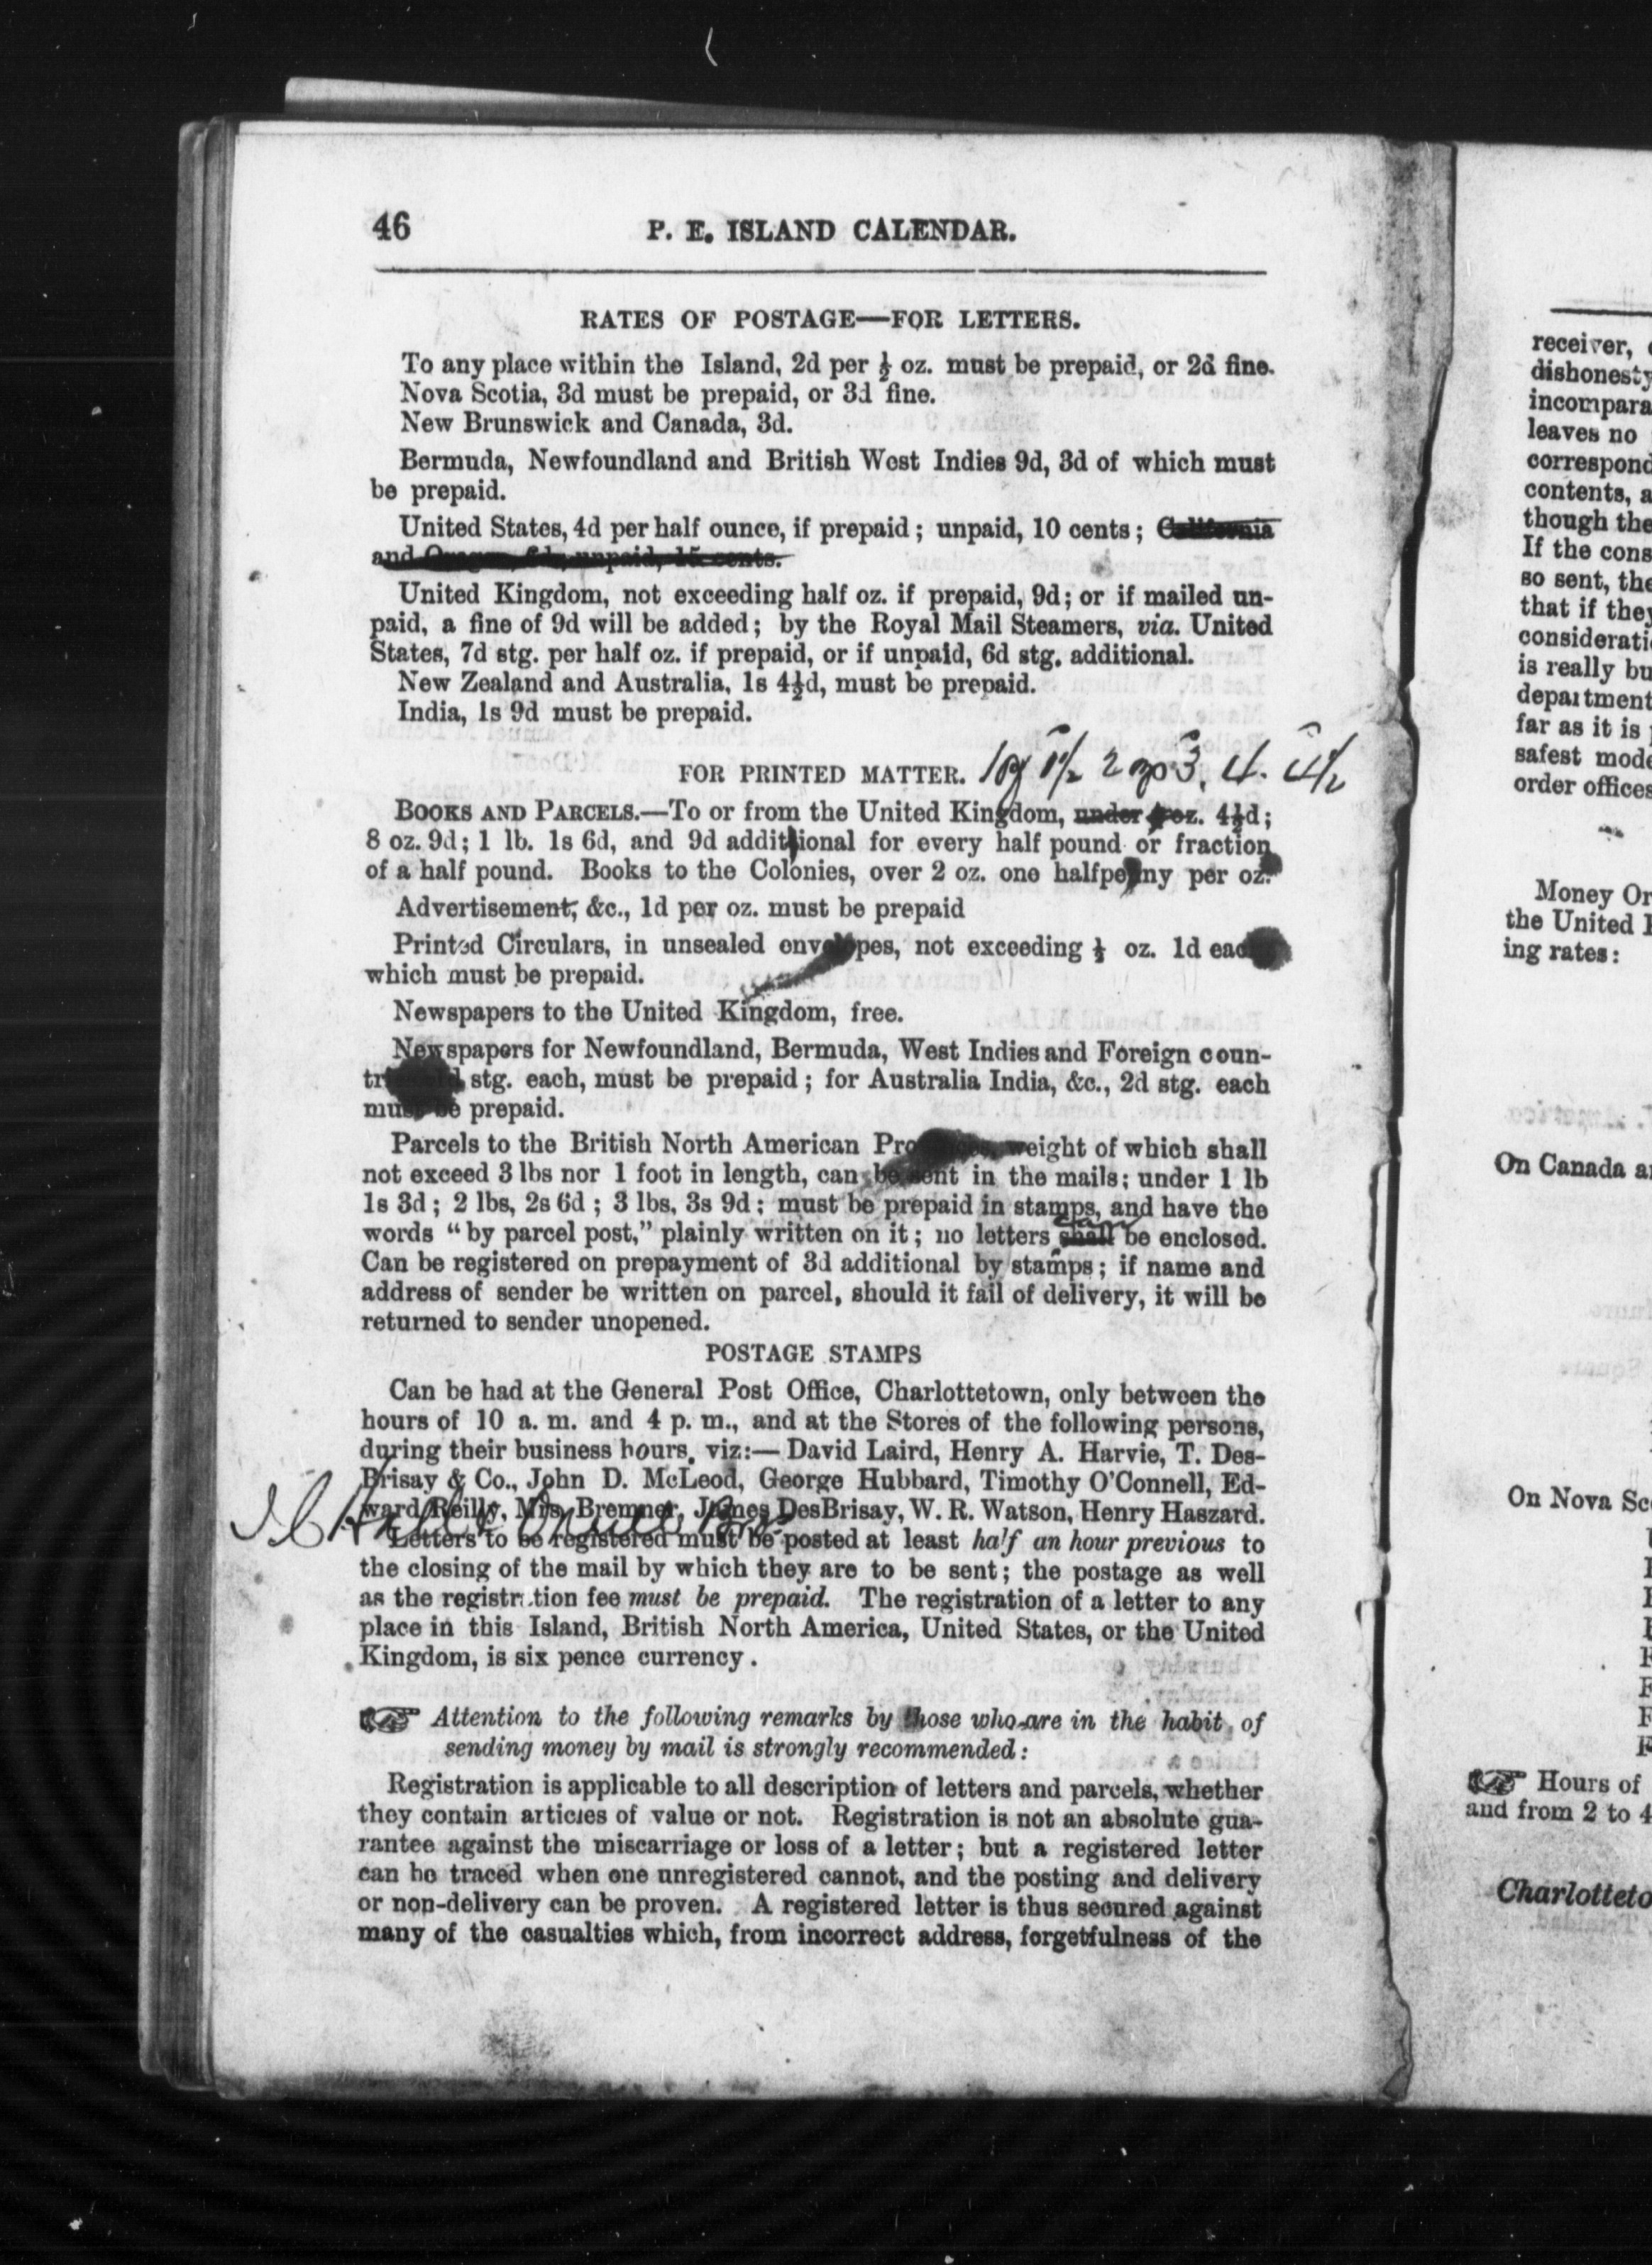 46 P. E. ISLAND CALENDAR.
RATES OF POSTAGE—FOR LETTERS.
To any place within the Island, 2d per ½ oz. must be prepaid, or 2d fine.
Nova Scotia, 3d must be prepaid, or 3d fine.
New Brunswick and Canada, 3d.
Bermuda, Newfoundland and British West Indies 9d, 3d of which must
be prepaid.
United States, 4d per half ounce, if prepaid; unpaid, 10 cents; California
and unpaid, 15 cents.
United Kingdom, not exceeding half oz. if prepaid, 9d; or if mailed un-
paid, a fine of 9d will be added; by the Royal Mail Steamers, via. United
States, 7d stg. per half oz. if prepaid, or if unpaid, 6d stg. additional.
New Zealand and Australia, 1s 4½d, must be prepaid.
India, 1s 9d must be prepaid.
FOR PRINTED MATTER.
BOOKS AND PARCELS.—To or from the United Kingdom, under oz. 4½d;
8 oz. 9d; 1 lb. 1s 6d, and 9d additional for every half pound or fraction
of a half pound. Books to the Colonies, over 2 oz. one halfpenny per oz.
Advertisement, &c., 1d per oz. must be prepaid
Printed Circulars, in unsealed envelopes, not exceeding ½ oz. 1d each
which must be prepaid.
Newspapers to the United Kingdom, free.
Newspapers for Newfoundland, Bermuda, West Indies and Foreign coun-
stg. each, must be prepaid; for Australia India, &c., 2d stg. each
must be prepaid.
Parcels to the British North American weight of which shall
not exceed 3 lbs nor 1 foot in length, can be sent in the mails; under 1 lb
1s 3d; 2 lbs, 2s 6d; 3 lbs, 3s 9d; must be prepaid in stamps, and have the
words "by parcel post," plainly written on it; no letters shall be enclosed.
Can be registered on prepayment of 3d additional by stamps; if name and
address of sender be written on parcel, should it fail of delivery, it will be
returned to sender unopened.
POSTAGE STAMPS
Can be had at the General Post Office, Charlottetown, only between the
hours of 10 a. m. and 4 p. m., and at the Stores of the following persons,
during their business hours, viz:— David Laird, Henry A. Harvie, T. Des-
Brisay & Co., John D. McLeod, George Hubbard, Timothy O'Connell, Ed-
ward Reilly, Mrs. Bremner, James DesBrisay, W. R. Watson, Henry Haszard.
Letters to be registered must be posted at least half an hour previous to
the closing of the mail by which they are to be sent; the postage as well
as the registration fee must be prepaid. The registration of a letter to any
place in this Island, British North America, United States, or the United
Kingdom, is six pence currency.
☞ Attention to the following remarks by those who are in the habit of
sending money by mail is strongly recommended:
Registration is applicable to all description of letters and parcels, whether
they contain articles of value or not. Registration is not an absolute gua-
rantee against the miscarriage or loss of a letter; but a registered letter
can be traced when one unregistered cannot, and the posting and delivery
or non-delivery can be proven. A registered letter is thus secured against
many of the casualties which, from incorrect address, forgetfulness of the
receiver,
dishonesty
incompara
leaves no
correspond
contents, a
though the
If the cons
so sent, the
that if they
considerati
is really bu
department
far as it is
safest mode
order offices
Money Or
the United
ing rates:
On Canada a
On Nova Sc
☞ Hours of
and from 2 to 4
Charlotteto